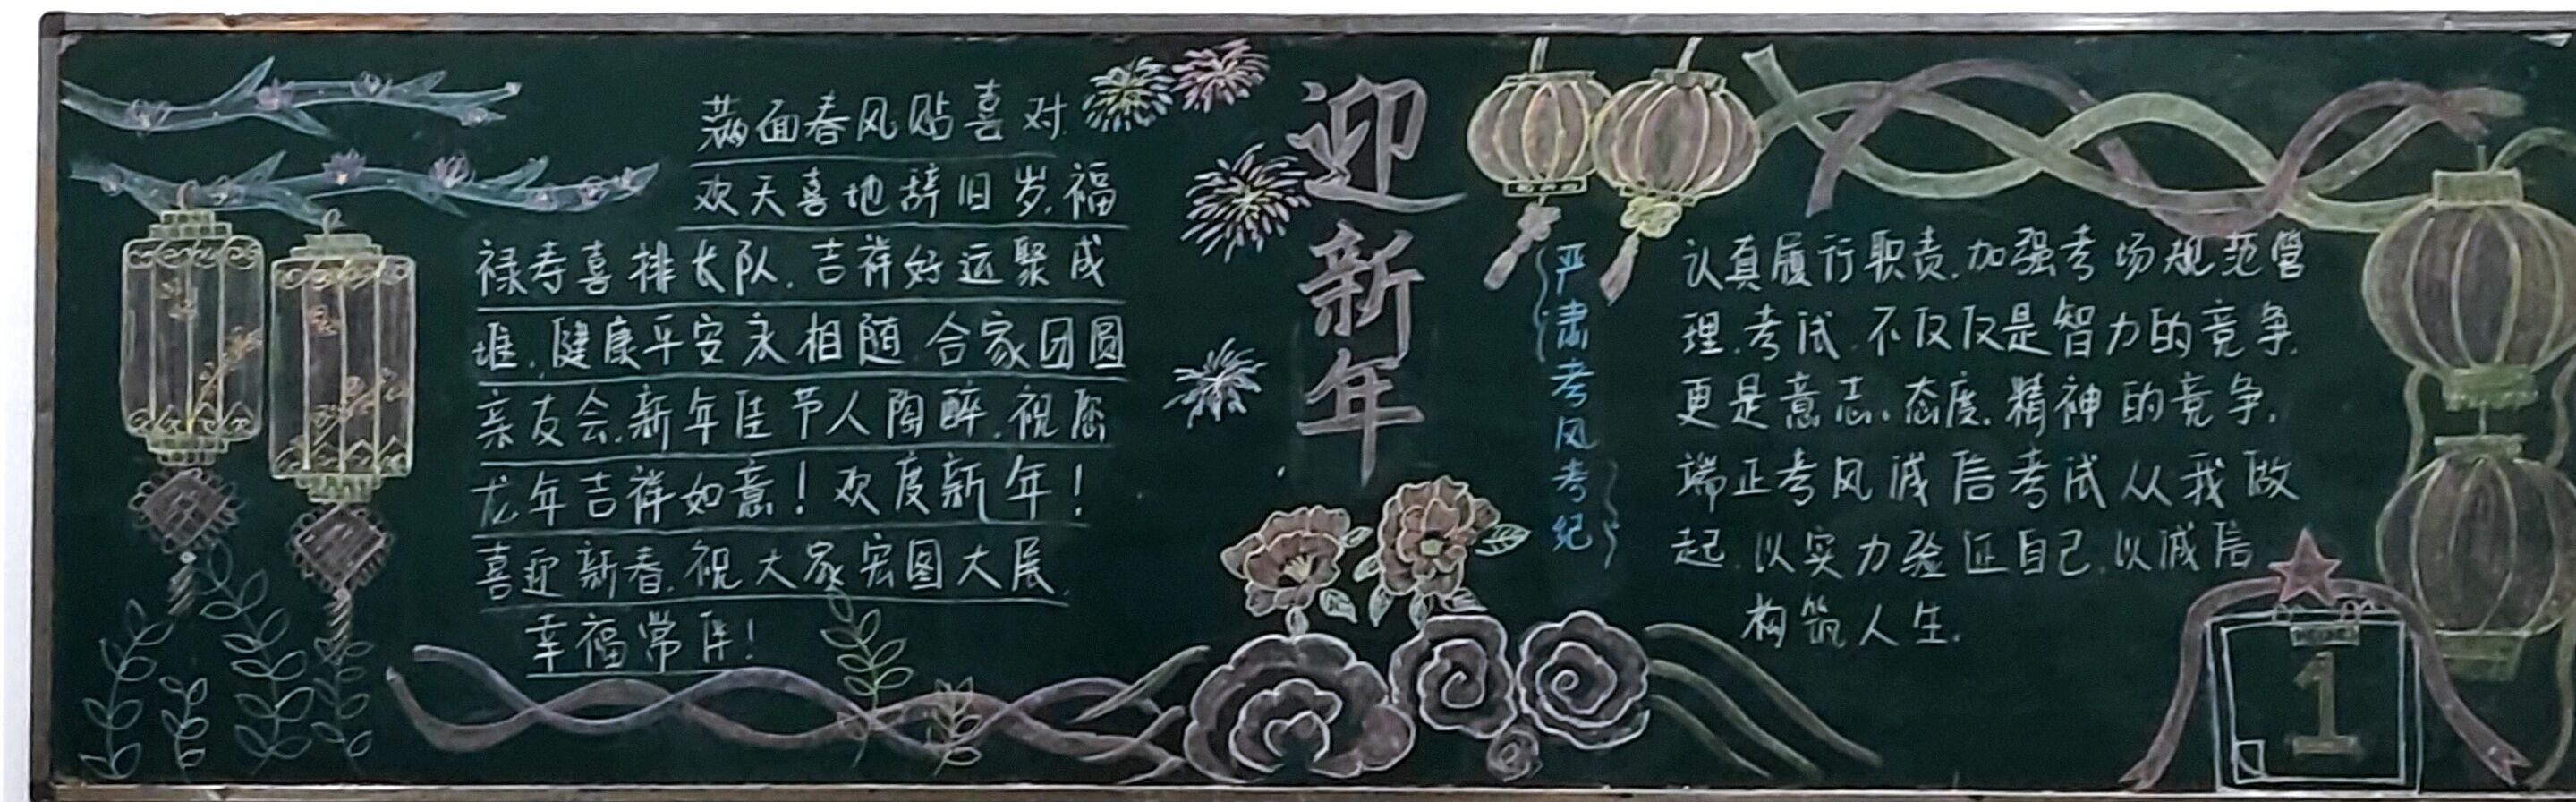 满面春风贴喜对.
欢天喜地辞旧岁.福
禄寿喜排长队.吉祥好运聚成
堆.健康平安永相随.合家团圆
亲友会.新年佳节人陶醉.祝愿
龙年吉祥如意！欢度新年！
喜迎新春.祝大家宏图大展.
幸福常伴！
迎新年
严肃考风考纪
认真履行职责.加强考场规范管
理.考试.不仅仅是智力的竞争.
更是意志、态度.精神的竞争.
端正考风诚信考试从我做
起.以实力验证自己.以诚信
构筑人生.
1